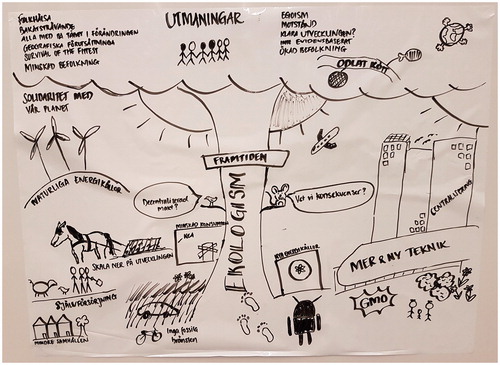 FOLKHÄLSA
BAKÅTSTRÄVANDE
ALLA MED PÅ TÅGET I FÖRÄNDRINGEN
GEOGRAFISKA FÖRUTSÄTTNINGA
SURVIVAL OF THE FITTEST
MINSKAD BEFOLKNING
UTMANINGAR
EGOISM
MOTSTÅND
KLARA UTVECKLINGEN?
EVIDENSBASERAT
ÖKAD BEFOLKNING
ODLAT KÖTT
SOLIDARITET MED
VÅR PLANET
FRAMTIDEN
NATURLIGA ENERGIKÄLLOR
Decentraliserad
makt?
EKOLOGISM
Vet vi konsekvenser?
CENTRALISERING
MINSKAD KONSUMTION
IKEA
SKALA NER PÅ UTVECKLINGEN
MER & NY TEKNIK
SJÄLVFÖRSÖRJNING
GMO
MINDRE SAMHÄLLEN
Inga fossila
bränslen